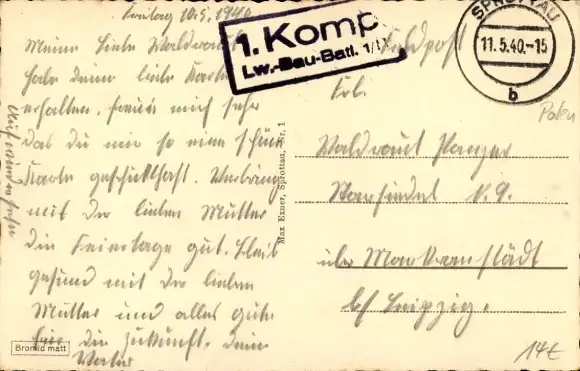 Freitag 10.5.1940
Meine liebe Waltraut
habe deine liebe Karte
erhalten, freue mich sehr
das du mir so eine schöne
Karte geschickt hast. Verbringe
mit der lieben Mutter
die Feiertage gut. Bleib
gesund mit der lieben
Mutter und alles gute
für die Zukunft. Dein
Vater
Auf wiedersehn
1. Komp
Lw.-Bau-Batl. 1/
Feldpost
SPROTTAU
11.5.40.-15
b
Polen
Frl.
Waltraut
Starsiedel
über Markranstädt
bei Leipzig.
14€
Max Exner, Sprottau, Nr. 1
Bromid matt